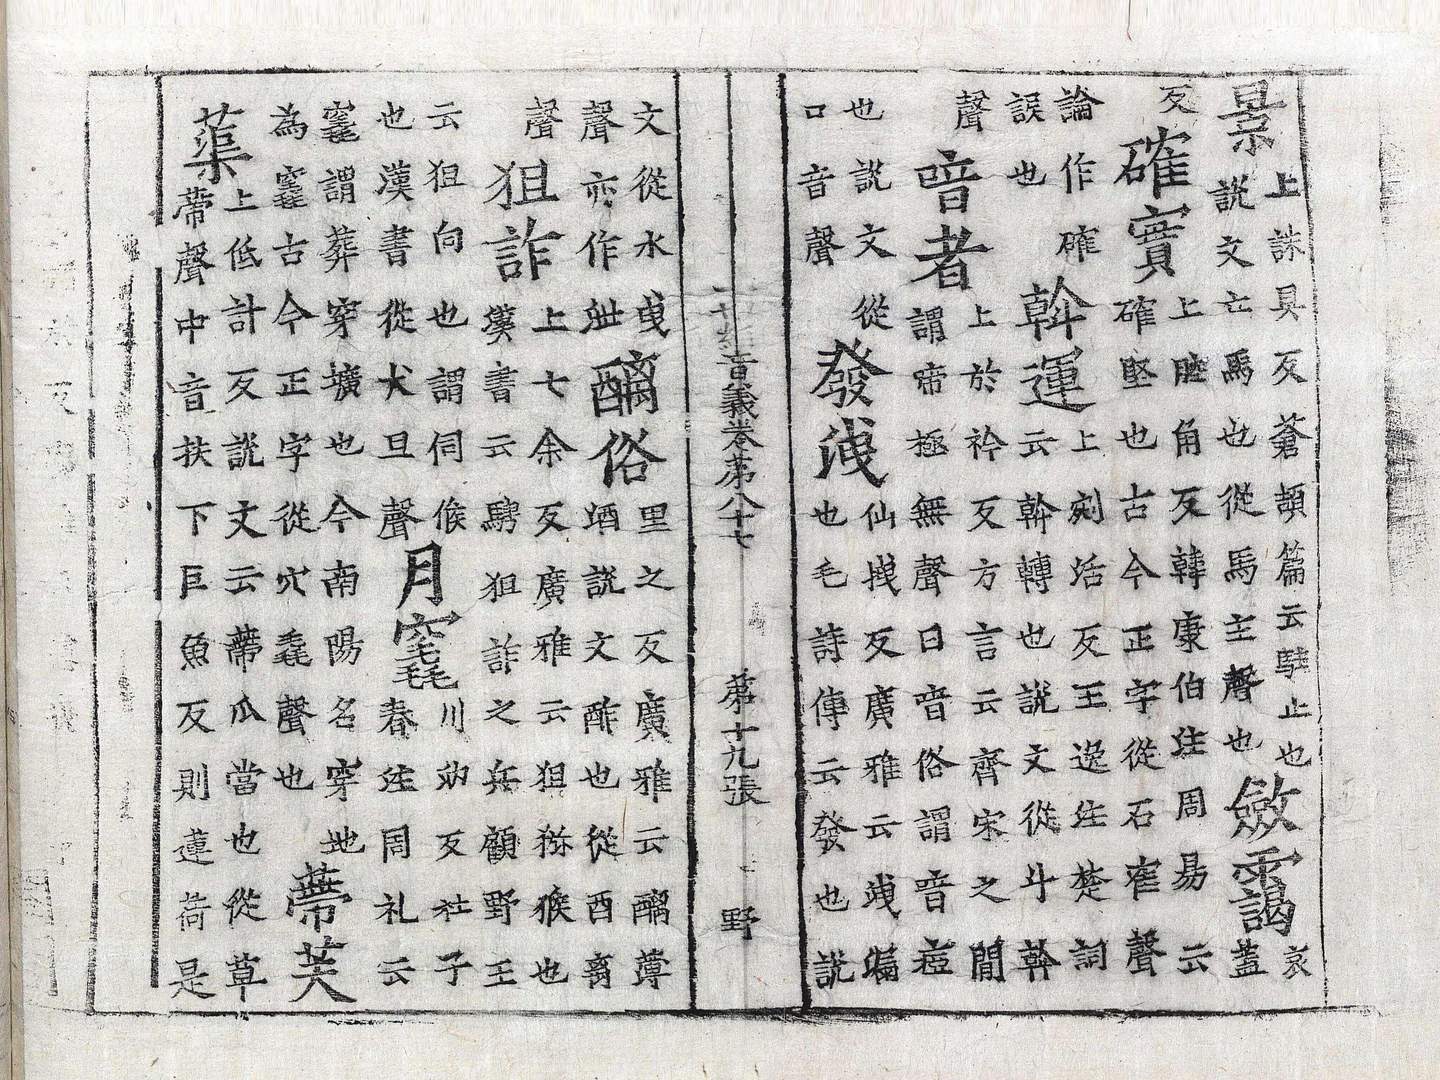 景上誅具反蒼頡篇云駐止也說文亡馬也從馬主聲也斂靄哀蓋
反確實上腔角反韓康伯注周易云確堅也古今正字從石隺聲
論作確誤也榦運上剜活反王逸注楚詞云榦轉也說文從斗榦
聲喑者上於衿反方言云齊宋之間謂啼極無聲曰喑俗謂喑瘂
也說文從口音聲發洩仙拽反廣雅云洩漏也毛詩傳云發也說
音義卷第八十七 第十九張 野
文從水曳聲亦作泄醨俗里之反廣雅云醨薄酒說文酢也從酉离
聲狙詐上七余反廣雅云狙猕猴也漢書云騁狙詐之兵顧野王
云狙向也謂伺候也漢書從犬且聲月竁川芮反杜子春注周礼云
竁謂葬穿壙也今南陽名穿地為竁古今正字從穴毳聲也蔕芙
蕖上低計反說文云蔕瓜當也從草帶聲中音扶下巨魚反則蓮荷是